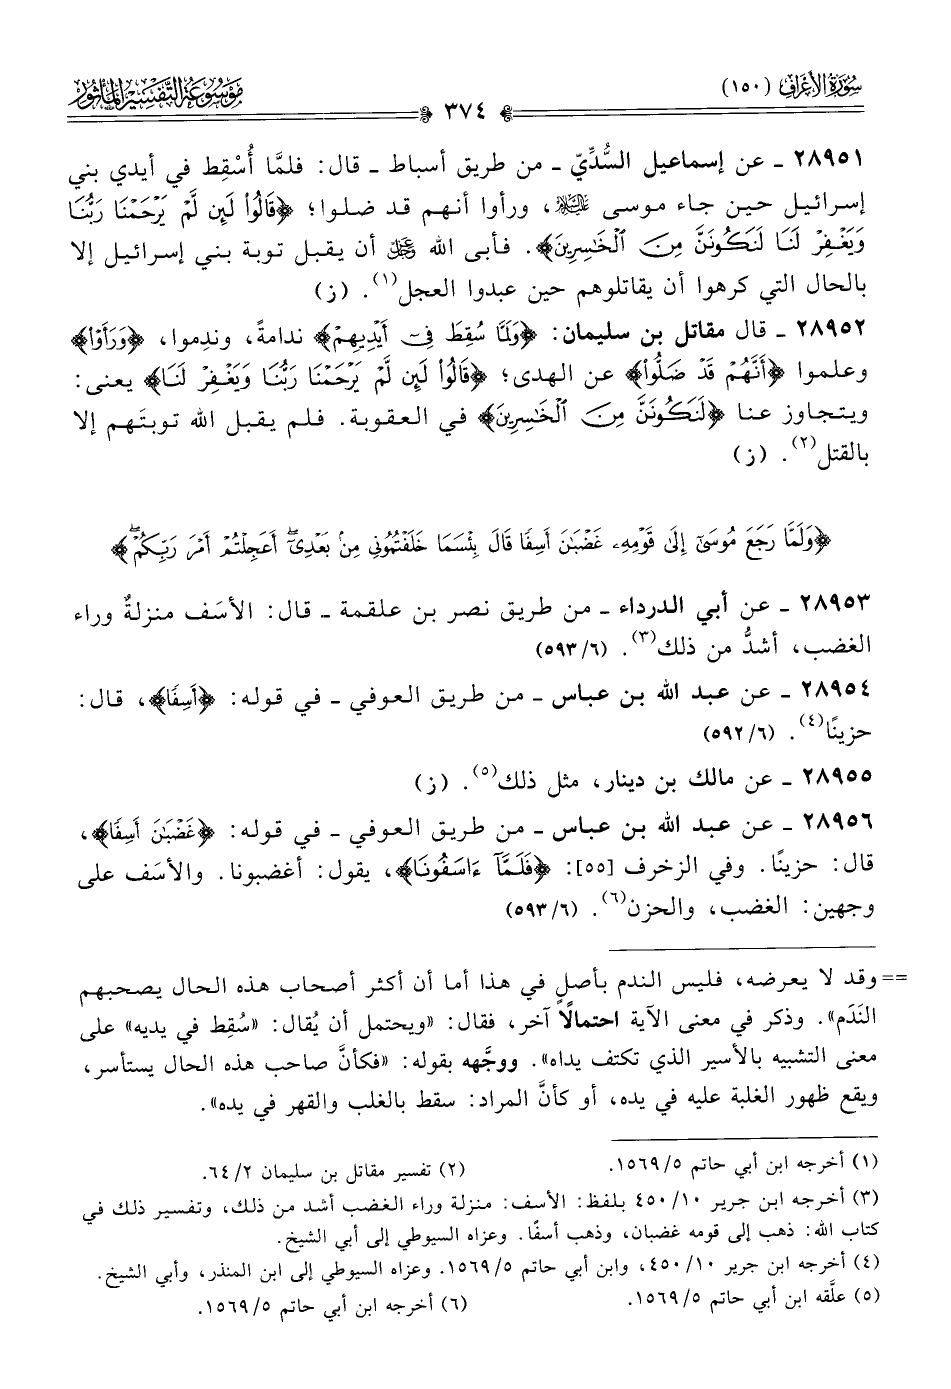 سُورَةُ الأَعْرَاف (١٥٠)
٣٧٤
مَوْسُوعَة التَّفْسِير المَأْثُور
٢٨٩٥١ ـ عن إسماعيل السُّدِّيّ ـ من طريق أسباط ـ قال: فلمَّا أُسْقِط في أيدي بني
إسرائيل حين جاء موسى ﵇، ورأوا أنهم قد ضلوا؛ ﴿قَالُوا۟ لَئِن لَّمْ يَرْحَمْنَا رَبُّنَا
وَيَغْفِرْ لَنَا لَنَكُونَنَّ مِنَ ٱلْخَـٰسِرِينَ﴾. فأبى الله ﷿ أن يقبل توبة بني إسرائيل إلا
بالحال التي كرهوا أن يقاتلوهم حين عبدوا العجل(١). (ز)
٢٨٩٥٢ ـ قال مقاتل بن سليمان: ﴿وَلَمَّا سُقِطَ فِىٓ أَيْدِيهِمْ﴾ ندامةً، وندِموا، ﴿وَرَأَوْا۟﴾
وعلموا ﴿أَنَّهُمْ قَدْ ضَلُّوا۟﴾ عن الهدى؛ ﴿قَالُوا۟ لَئِن لَّمْ يَرْحَمْنَا رَبُّنَا وَيَغْفِرْ لَنَا﴾ يعني:
ويتجاوز عنا ﴿لَنَكُونَنَّ مِنَ ٱلْخَـٰسِرِينَ﴾ في العقوبة. فلم يقبل الله توبتَهم إلا
بالقتل(٢). (ز)
﴿وَلَمَّا رَجَعَ مُوسَىٰٓ إِلَىٰ قَوْمِهِۦ غَضْبَـٰنَ أَسِفًا قَالَ بِئْسَمَا خَلَفْتُمُونِى مِنۢ بَعْدِىٓ ۖ أَعَجِلْتُمْ أَمْرَ رَبِّكُمْ ۖ﴾
٢٨٩٥٣ ـ عن أبي الدرداء ـ من طريق نصر بن علقمة ـ قال: الأسَف منزلةٌ وراء
الغضب، أشدُّ من ذلك(٣). (٥٩٣/٦)
٢٨٩٥٤ ـ عن عبد الله بن عباس ـ من طريق العوفي ـ في قوله: ﴿أَسِفًا﴾، قال:
حزينًا(٤). (٥٩٢/٦)
٢٨٩٥٥ ـ عن مالك بن دينار، مثل ذلك(٥). (ز)
٢٨٩٥٦ ـ عن عبد الله بن عباس ـ من طريق العوفي ـ في قوله: ﴿غَضْبَـٰنَ أَسِفًا﴾،
قال: حزينًا. وفي الزخرف [٥٥]: ﴿فَلَمَّآ ءَاسَفُونَا﴾، يقول: أغضبونا. والأسَف على
وجهين: الغضب، والحزن(٦). (٥٩٣/٦)
== وقد لا يعرضه، فليس الندم بأصلٍ في هذا أما أن أكثر أصحاب هذه الحال يصحبهم
النَدَم». وذكر في معنى الآية احتمالًا آخر، فقال: «ويحتمل أن يُقال: «سُقِط في يديه» على
معنى التشبيه بالأسير الذي تكتف يداه». ووجَّهه بقوله: «فكأنَّ صاحب هذه الحال يستأسر،
ويقع ظهور الغلبة عليه في يده، أو كأنَّ المراد: سقط بالغلب والقهر في يده».
(١) أخرجه ابن أبي حاتم ١٥٦٩/٥.
(٢) تفسير مقاتل بن سليمان ٦٤/٢.
(٣) أخرجه ابن جرير ٤٥٠/١٠ بلفظ: الأسف: منزلة وراء الغضب أشد من ذلك، وتفسير ذلك في
كتاب الله: ذهب إلى قومه غضبان، وذهب أسفًا. وعزاه السيوطي إلى أبي الشيخ.
(٤) أخرجه ابن جرير ٤٥٠/١٠، وابن أبي حاتم ١٥٦٩/٥. وعزاه السيوطي إلى ابن المنذر، وأبي الشيخ.
(٥) علَّقه ابن أبي حاتم ١٥٦٩/٥.
(٦) أخرجه ابن أبي حاتم ١٥٦٩/٥.